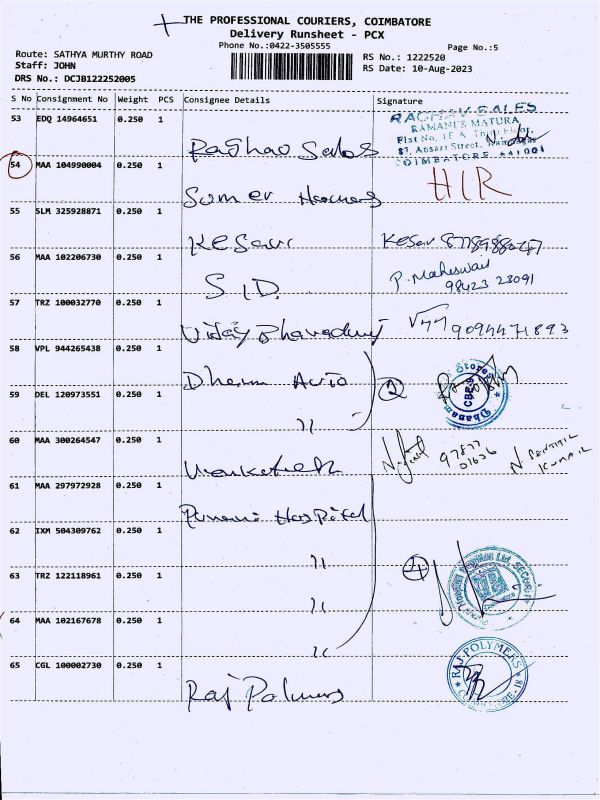 THE PROFESSIONAL COURIERS, COIMBATORE
Delivery Runsheet - PCX
Phone No.:0422-3505555
Page No.:5
Route: SATHYA MURTHY ROAD
Staff: JOHN
DRS No.: DCJB122252005
RS No.: 1222520
RS Date: 10-Aug-2023
S No Consignment No Weight PCS Consignee Details Signature
53 EDQ 14964651 0.250 1
RAGHAV SALES
RAMANI'S MATURA
Flat No. 1F A, Third Floor,
87, Ansari Street,
COIMBATORE - 641001
54 MAA 104990004 0.250 1
HIR
55 SLM 325928871 0.250 1
Kesav
56 MAA 102206730 0.250 1
S.I.D.
P. Maheswari
98423 23091
57 TRZ 100032770 0.250 1
9094471893
58 VPL 944265438 0.250 1
Dharm Auto
2
59 DEL 120973551 0.250 1
"
60 MAA 300264547 0.250 1
97877
01636
N. SENTHIL
KUMAR
61 MAA 297972928 0.250 1
Hospital
62 IXM 504309762 0.250 1
"
4
63 TRZ 122118961 0.250 1
"
64 MAA 102167678 0.250 1
"
65 CGL 100002730 0.250 1
Raj Polymers
RAJ POLYMERS
COIMBATORE-18